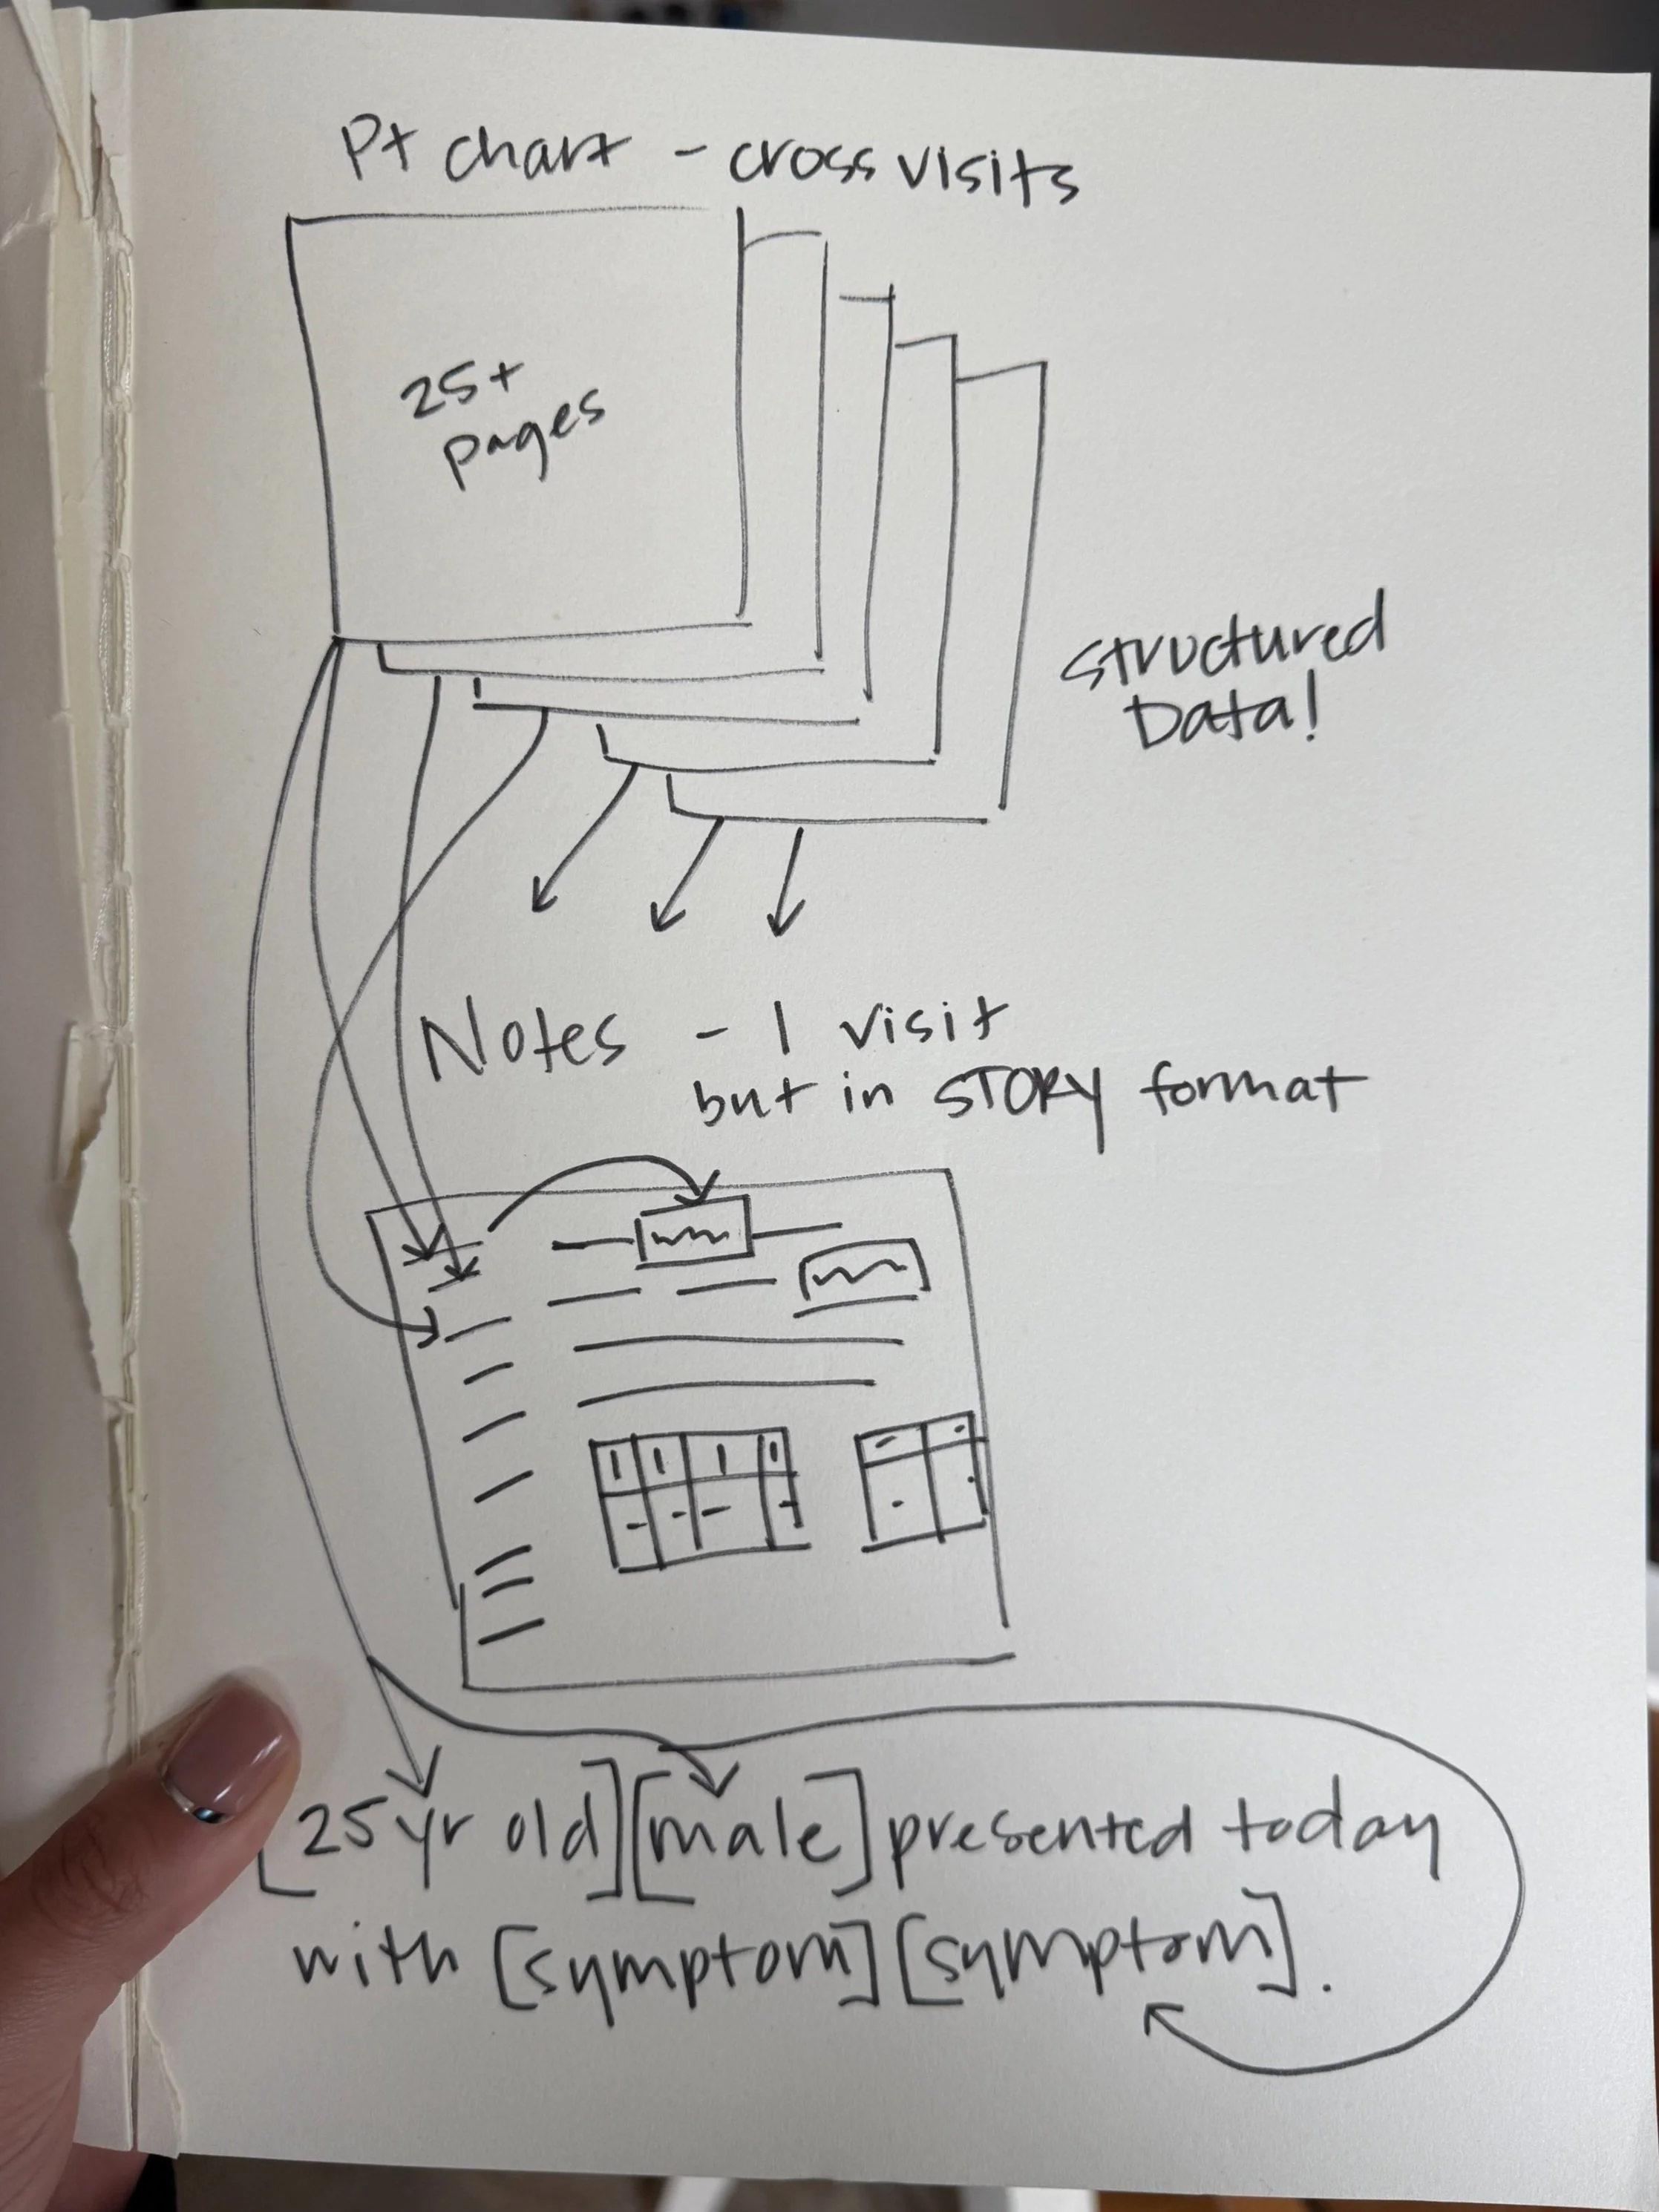 Pt chart - cross visits
25+
pages
structured
Data!
Notes - 1 visit
but in STORY format
[25 yr old][male] presented today
with [symptom][symptom].